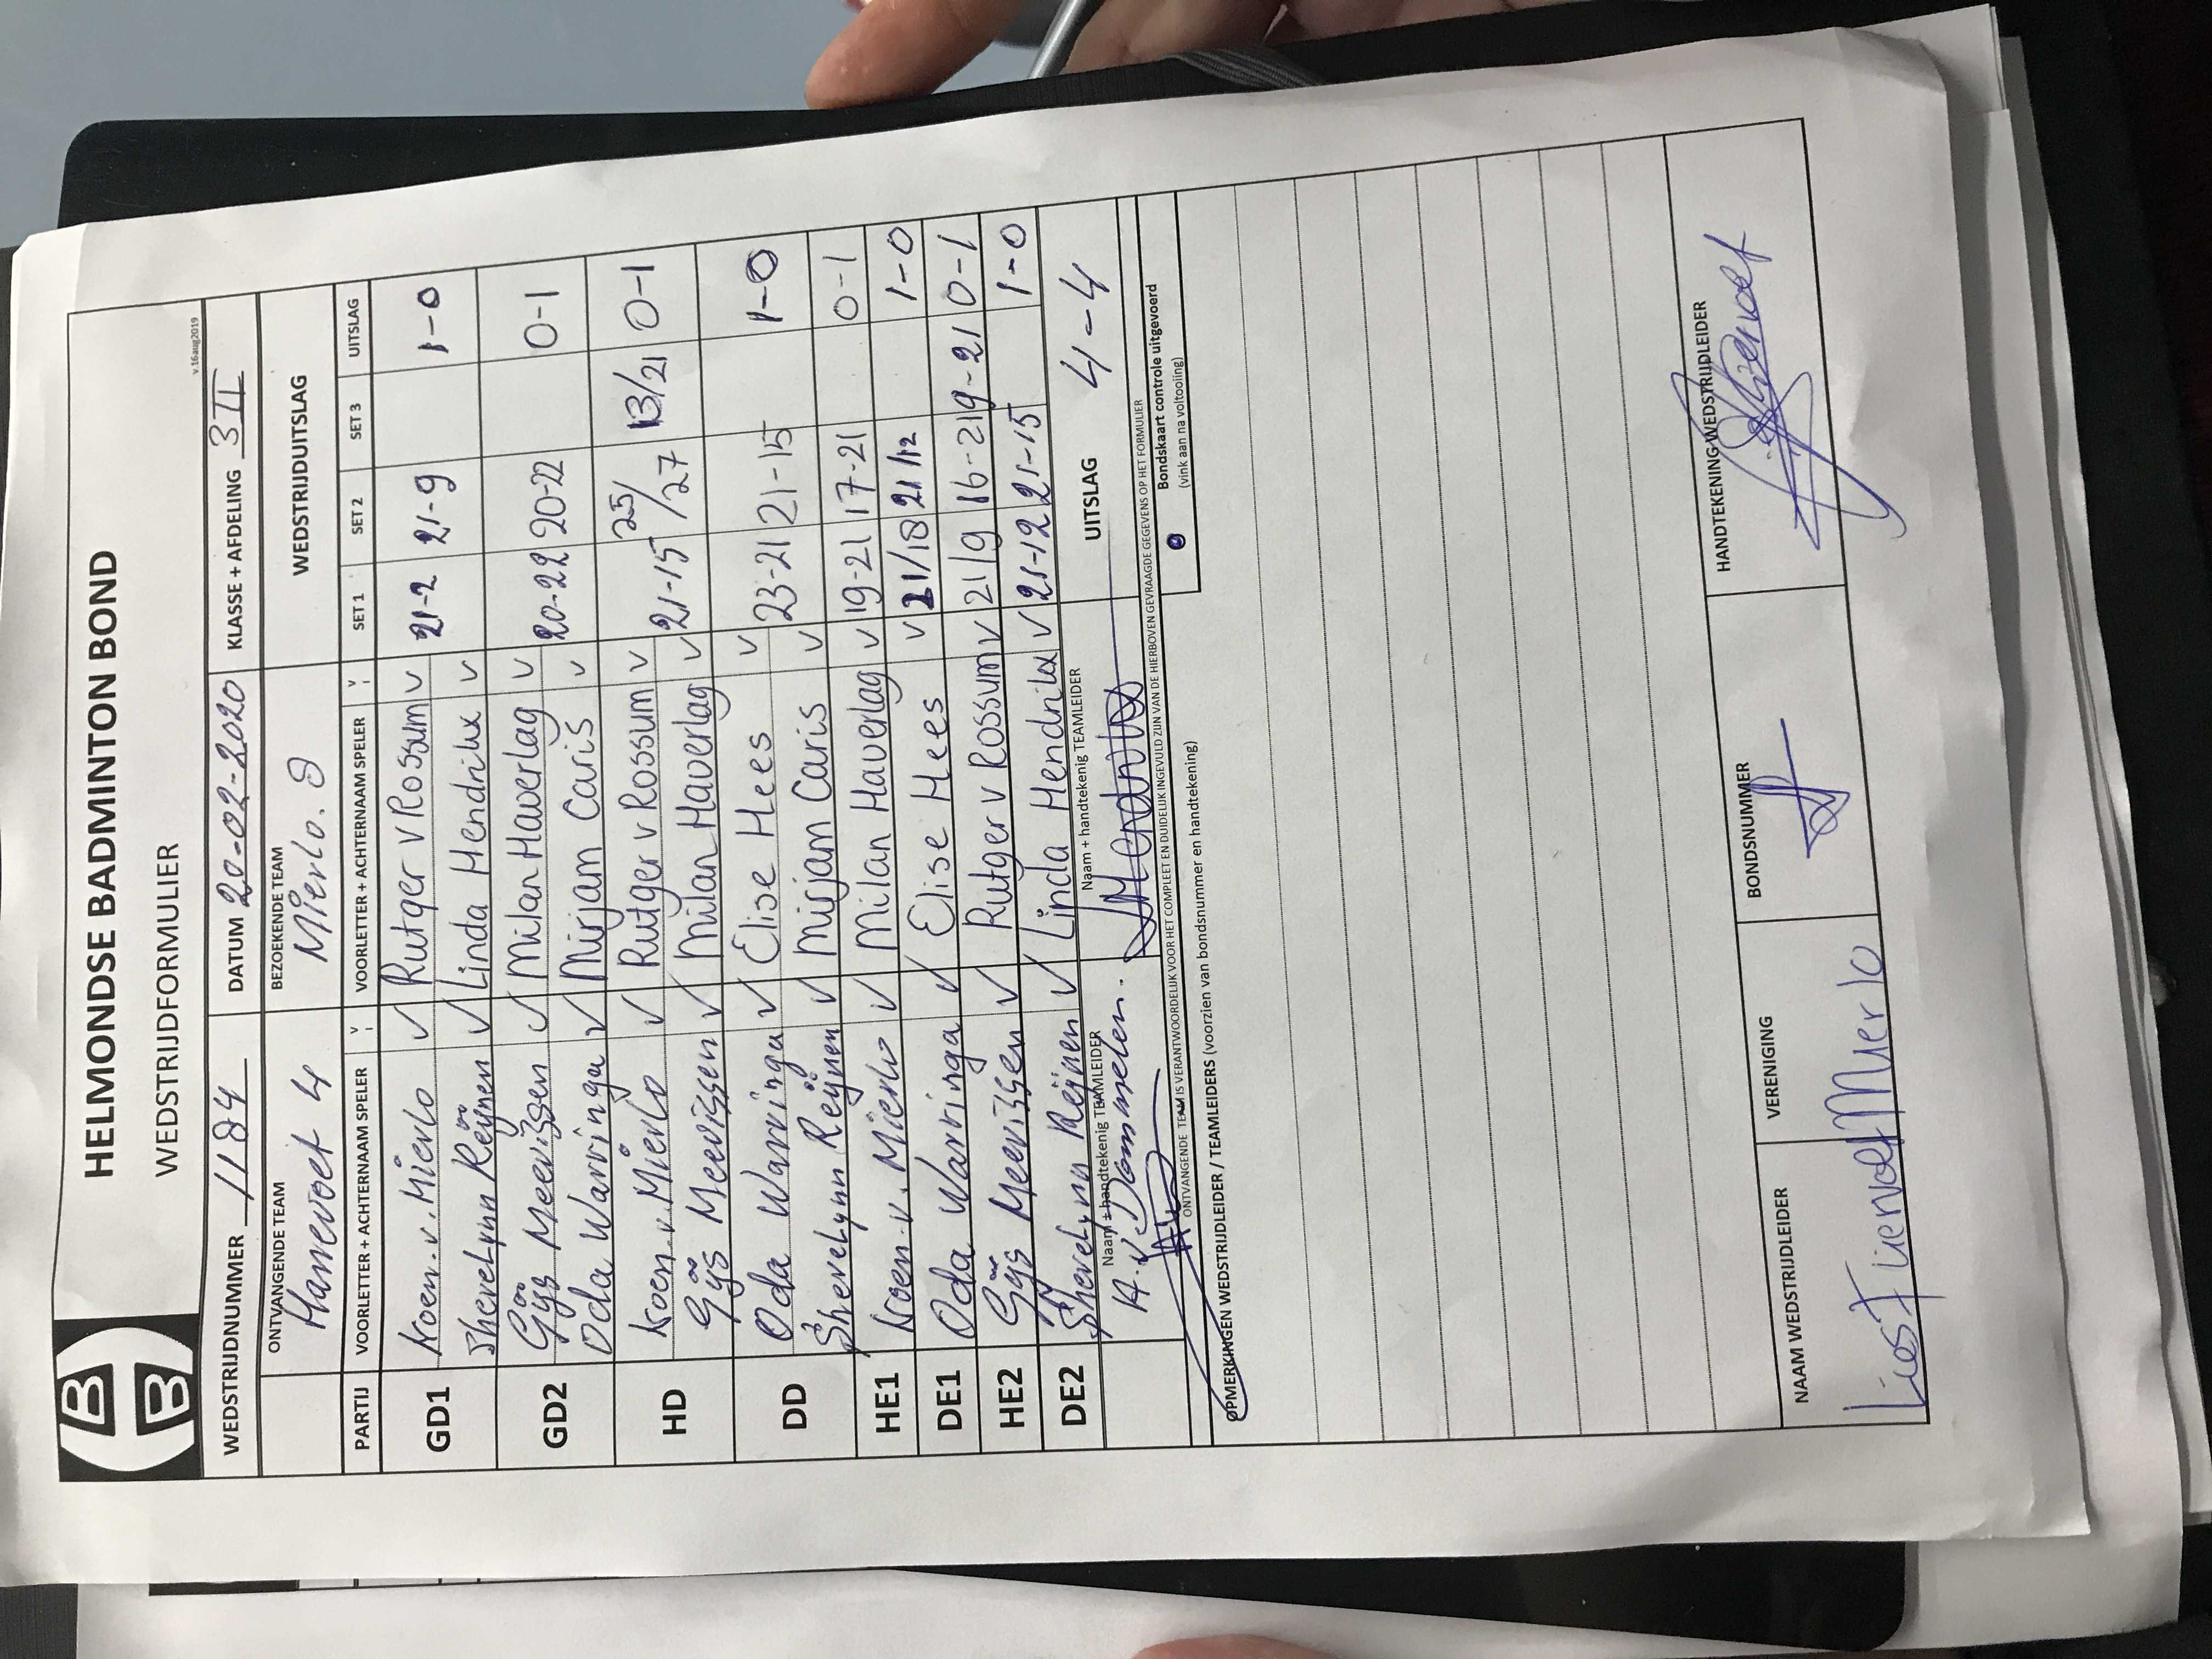 HELMONDSE BADMINTON BOND
WEDSTRIJDFORMULIER
v.16aug2019
WEDSTRIJDNUMMER 1184 DATUM 20-02-2020 KLASSE + AFDELING 3 II
ONTVANGENDE TEAM BEZOEKENDE TEAM WEDSTRIJDUITSLAG
Hanevoet 4 Mierlo. 8
PARTIJ VOORLETTER + ACHTERNAAM SPELER Y VOORLETTER + ACHTERNAAM SPELER Y SET 1 SET 2 SET 3 UITSLAG
GD1 Koen. v. Mierlo ✓ Rutger v Rossum v 21-2 21-9 1-0
Sherelynn Reijnen ✓ Linda Hendrikx v
GD2 Gijs Meevissen ✓ Milan Haverlag v 20-22 20-22 0-1
Oda Warringa ✓ Mirjam Caris v
HD Koen. v. Mierlo ✓ Rutger v Rossum v 21-15 25/27 13/21 0-1
Gijs Meevissen ✓ Milan Haverlag v
DD Oda Warringa ✓ Elise Hees v 23-21 21-15 1-0
Sherelynn Reijnen ✓ Mirjam Caris v
HE1 Koen. v. Mierlo ✓ Milan Haverlag v 19-21 17-21 0-1
DE1 Oda Warringa ✓ Elise Hees v 21/18 21/12 1-0
HE2 Gijs Meevissen ✓ Rutger v Rossum v 21/9 16-21 19-21 0-1
DE2 Sherelynn Reijnen ✓ Linda Hendrikx v 21-12 21-15 1-0
Naam + handtekenig TEAMLEIDER Naam + handtekenig TEAMLEIDER UITSLAG 4-4
ONTVANGENDE TEAM IS VERANTWOORDELIJK VOOR HET COMPLEET EN DUIDELIJK INGEVULD ZIJN VAN DE HIERBOVEN GEVRAAGDE GEGEVENS OP HET FORMULIER
Bondskaart controle uitgevoerd
(vink aan na voltooling)
OPMERKINGEN WEDSTRIJDLEIDER / TEAMLEIDERS (voorzien van bondsnummer en handtekening)
NAAM WEDSTRIJDLEIDER VERENIGING BONDSNUMMER HANDTEKENING WEDSTRIJDLEIDER
Mierlo